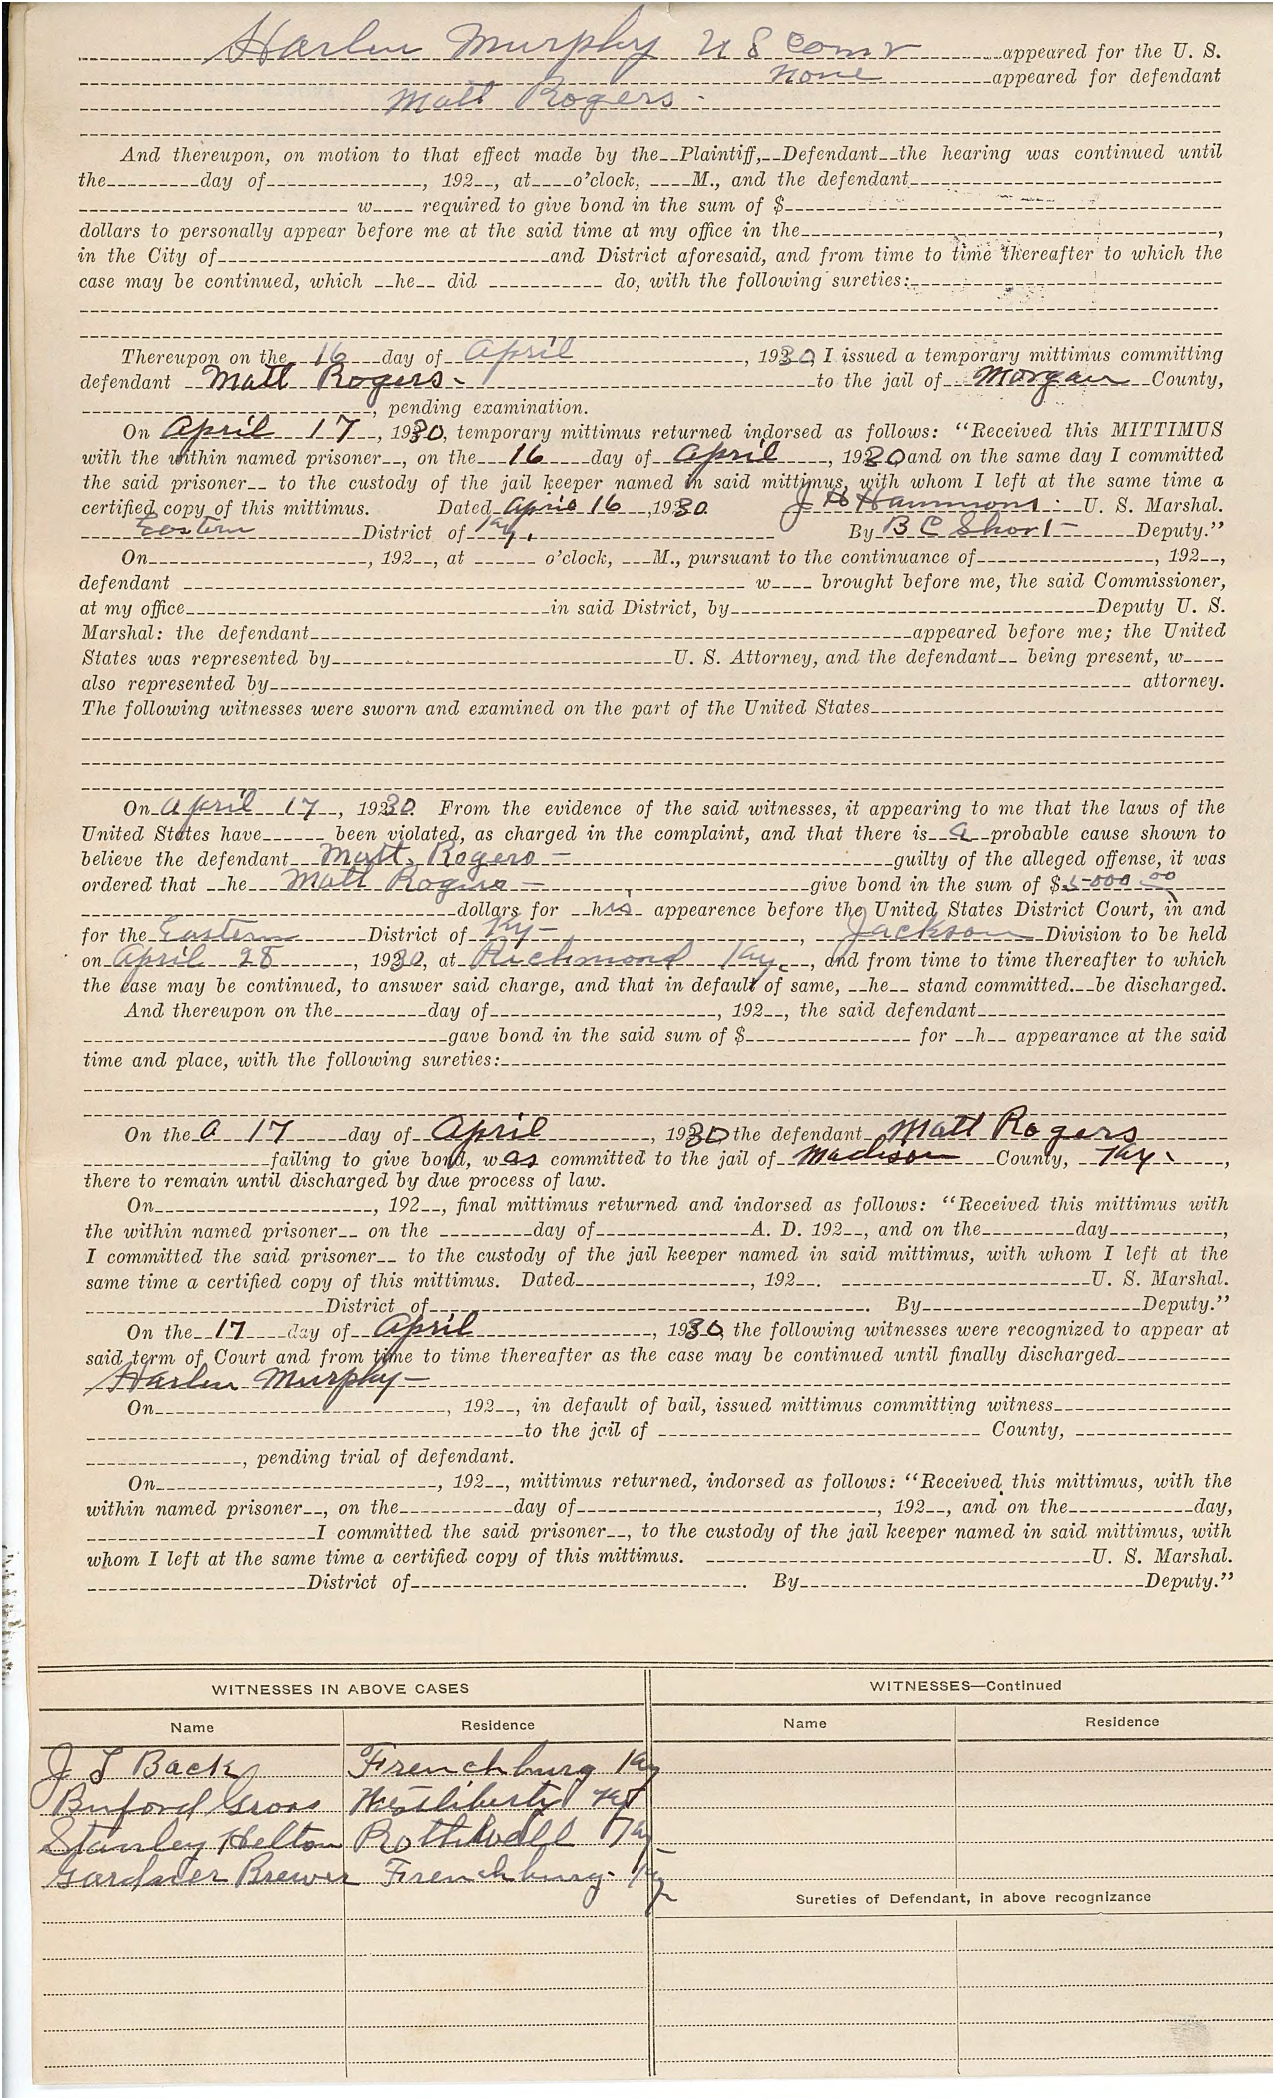 Harlen Murphy U S Comr appeared for the U. S.
none appeared for defendant
Matt Rogers -
And thereupon, on motion to that effect made by the Plaintiff, Defendant the hearing was continued until
the day of , 192 , at o'clock, M., and the defendant
w required to give bond in the sum of $
dollars to personally appear before me at the said time at my office in the ,
in the City of and District aforesaid, and from time to time thereafter to which the
case may be continued, which he did do, with the following sureties:
Thereupon on the 16 day of April , 1930, I issued a temporary mittimus committing
defendant Matt Rogers - to the jail of Morgan County,
, pending examination.
On April 17 , 1930, temporary mittimus returned indorsed as follows: "Received this MITTIMUS
with the within named prisoner , on the 16 day of April , 1930 and on the same day I committed
the said prisoner to the custody of the jail keeper named in said mittimus, with whom I left at the same time a
certified copy of this mittimus. Dated April 16 , 1930. J H Hammons U. S. Marshal.
Eastern District of Ky. By B C Short - Deputy."
On , 192 , at o'clock, M., pursuant to the continuance of , 192 ,
defendant w brought before me, the said Commissioner,
at my office in said District, by Deputy U. S.
Marshal: the defendant appeared before me; the United
States was represented by U. S. Attorney, and the defendant being present, w
also represented by attorney.
The following witnesses were sworn and examined on the part of the United States
On April 17 , 1930. From the evidence of the said witnesses, it appearing to me that the laws of the
United States have been violated, as charged in the complaint, and that there is a probable cause shown to
believe the defendant Matt. Rogers - guilty of the alleged offense, it was
ordered that he Matt Rogers - give bond in the sum of $5000.00
dollars for his appearence before the United States District Court, in and
for the Eastern District of Ky - , Jackson Division to be held
on April 28 , 1930, at Richmond Ky. , and from time to time thereafter to which
the case may be continued, to answer said charge, and that in default of same, he stand committed be discharged.
And thereupon on the day of , 192 , the said defendant
gave bond in the said sum of $ for h appearance at the said
time and place, with the following sureties:
On the a 17 day of April , 1930 the defendant Matt Rogers
failing to give bond, was committed to the jail of Madison County, Ky. ,
there to remain until discharged by due process of law.
On , 192 , final mittimus returned and indorsed as follows: "Received this mittimus with
the within named prisoner on the day of A. D. 192 , and on the day ,
I committed the said prisoner to the custody of the jail keeper named in said mittimus, with whom I left at the
same time a certified copy of this mittimus. Dated , 192 . U. S. Marshal.
District of . By Deputy."
On the 17 day of April , 1930, the following witnesses were recognized to appear at
said term of Court and from time to time thereafter as the case may be continued until finally discharged
Harlen Murphy -
On , 192 , in default of bail, issued mittimus committing witness
to the jail of County,
, pending trial of defendant.
On , 192 , mittimus returned, indorsed as follows: "Received this mittimus, with the
within named prisoner , on the day of , 192 , and on the day,
I committed the said prisoner , to the custody of the jail keeper named in said mittimus, with
whom I left at the same time a certified copy of this mittimus. U. S. Marshal.
District of . By Deputy."
WITNESSES IN ABOVE CASES WITNESSES—Continued
Name Residence Name Residence
J T Back Frenchburg Ky
Buford Gross Westliberty Ky
Stanley Helton Rothwell Ky
Gardner Brewer Frenchburg - Ky
Sureties of Defendant, in above recognizance